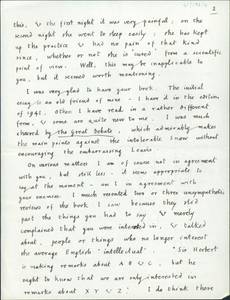 2
this, & the first night it was very painful; on the
second night she went to sleep easily; she has kept
up the practice & had no pain of that kind
since, whether or not she is cured, from a scientific
point of view. Well, this may be inapplicable to
you, but it seemed worth mentioning.
I was very glad to have your book. The initial
essay is an old friend of mine - I have it in the edition
of 1941. Others I have read in a rather different
form, & some are quite new to me. I was much
cheered by the great Debate, which admirably makes
the main points against the intolerable Snow without
encouraging the embarrassing Leavis.
On various matters I am of course not in agreement
with you, but still less - it seems appropriate to
say at the moment - am I in agreement with
your enemies. I much resented two or three unsympathetic
reviews of the book I saw because they slid
past the things you had to say & merely
complained that you were interested in, & talked
about, people or things who no longer interest
the average English 'intellectual'. "Sir Herbert
is making remarks about A B & C, but he
ought to know that we are only interested in
remarks about X Y & Z." I do think there